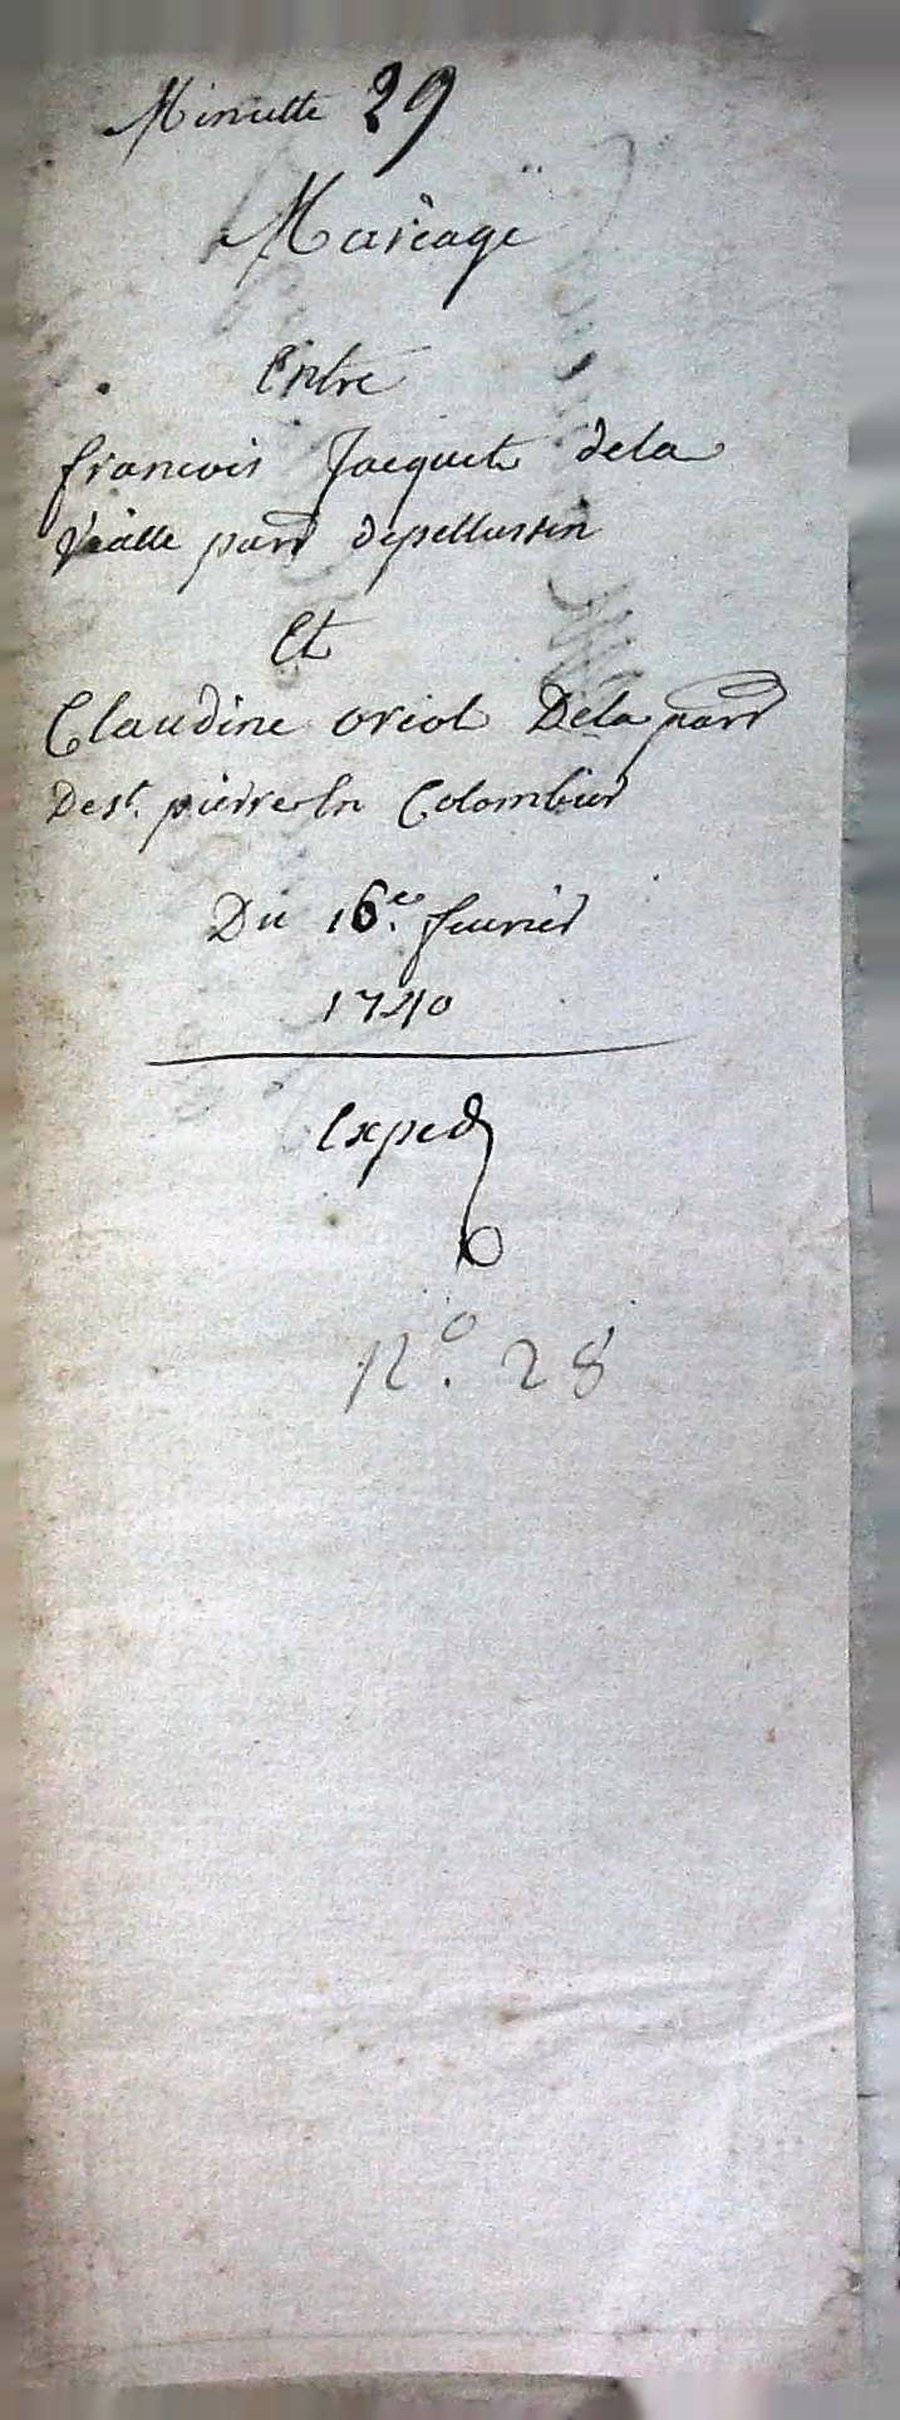 Minutte 29
Mariage
Entre
francois Jacquet dela
Vialle parr depellussin
Et
Claudine oriol Dela parr
Dest. pierre En Colombier
Du 16e. feuvrier
1740
Exped
No. 28